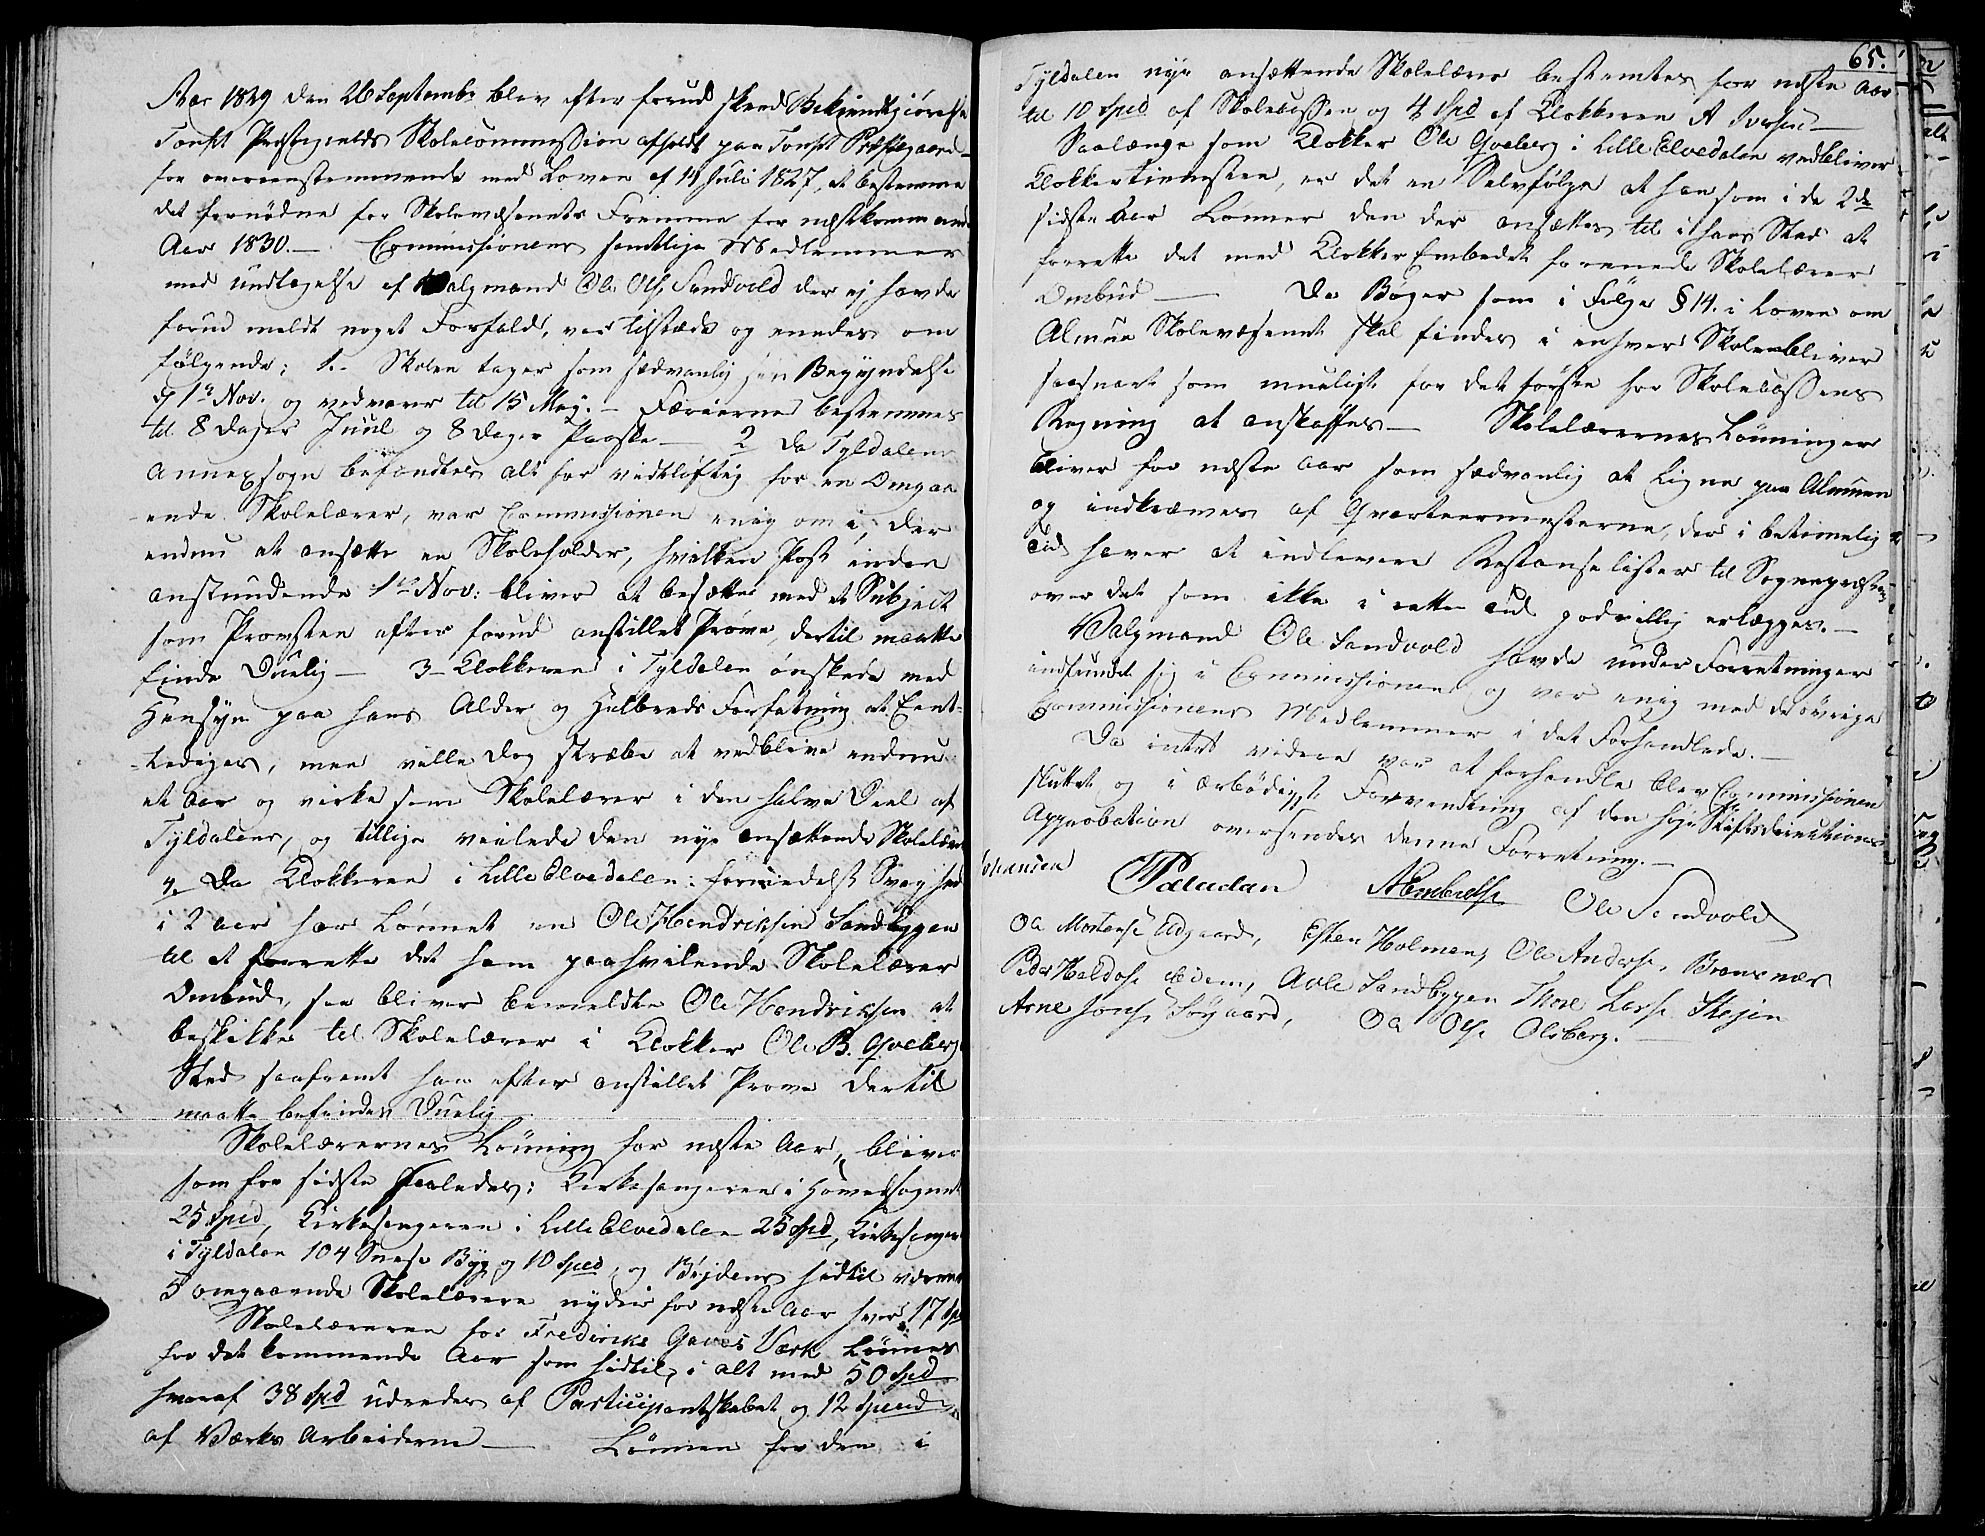 Aar 1829 den 26 Septembr blev efter forud skeed Bekjendtgiørelse
Tonset Præstegjelds Skolecommission afholdt paa Tonset Præstegaard
for overeenstemmende med Loven af 14 Juli 1827, at bestemme
det fornødne for Skolevæsenets Fremme for næstkommende
Aar 1830. — Commissionens samtlige Medlemmer
med undtagelse af Valgmand Ole Ols. Sandvold der ej havde
forud meldt noget Forfald, var tilstæde og enedes om
følgende: 1. Skolen tager som sædvanlig sin Begyndelse
d 1ste Nov. og vedvarer til 15 Maj. — Færierne bestemmes
til 8 dager Juul og 8 dager Paaske — 2 Da Tyldalens
Annexsogn befandtes alt for vidtløftig for en Omgaa
ende Skolelærer, var Commissionen enig om i, der
endnu at ansætte en Skoleholder, hvilken Post inden
anstundende 1ste Nov: bliver at besætte med et Subject
som Provsten efter forud anstillet Prøve, dertil maatte
finde Duelig — 3 — Klokkeren i Tyldalen ønskede med
Hensyn paa hans Alder og Helbreds Forfatning at Ent-
lediges, men vilde dog stræbe at vedblive endnu
et Aar og virke som Skolelærer i den halve Deel af
Tyldalens, og tillige veilede den nye ansættende Skolelærer
4. Da Klokkeren i Lille Elvedalen formedelst Svaghed
i 2 Aar har Lønnet en Ole Hendriksen Sandbyggen
til at forrette det ham paahvilende Skolelærer
Ombud, saa bliver bemeldte Ole Hendriksen at
beskikke til Skolelærer i Klokker Ole B. Qveberg
Sted saafremt han efter anstillet Prøve dertil
maatte befindes Duelig
Skolelærernes Lønning for næste Aar, bliver
som for sidste saaledes: Kirkesangeren i Hovedsognet
25 Spd, Kirkesangeren i Lille Elvedalen 25 Spd, Kirkesanger
i Tyldalen 104 Snese Byg og 10 Spd, og Bøjdens hidtil værende
5 omgaaende Skolelærere nyder for næste Aar hver 17 Sp
Skolelæreren for Fredriks Gaves Værk Lønnes
for det kommende Aar som hidtil, i alt med 50 Spd
hvoraf 38 Spd udredes af Participantskabet og 12 Specd
af Værks Arbeiderne — Lønnen for den i
65.
Tyldalen nye ansættende Skolelærer bestemtes for næste Aar
til 10 Spd af Skolecassen og 4 Spd af Klokkeren A Iversen —
Saalænge som Klokker Ole Qveberg i Lille Elvedalen vedbliver
Klokkertienesten, er det en Selvfølge at han som i de 2de
sidste Aar Lønner den der ansættes til i hans Sted at
forrette det med Klokker Embedet forenede Skolelærer
Ombud — De Bøger som i Følge § 14. i Loven om
Almue Skolevæsenet skal findes i enhver Skole bliver
saasnart som mueligt for det første for Skolecassens
Regning at anskaffes — Skolelærernes Lønninger
bliver for næste Aar som sædvanlig at Ligne paa Almuen
og indkræves af Qvarteermesterne, der i betimelig
tid haver at indlevere Restanselister til Sognepræsten
over det som ikke i rette tid godvillig erlægges. —
Valgmand Ole Sandvold havde under Forretningen
indfundet sig i Commissionen og var enig med de øvrige
Commissionens Medlemmer i det Forhandlede. —
Da intet videre var at forhandle blev Commissionen
sluttet og i ærbødigst Forventning af den høje Stiftsdirections
Approbation oversendes denne Forretning. —
Johansen
Paludan AEmbretsen Ole Sendvold
Ole Mortense Udgaard, Esten Holmen, Ole Anderse. Bronsnæs
Peder Haldose Eidem, Avle Sandbyggen Thore Larse Stejen
Arne Jonse Søgaard, Ole Olse Olsberg. —